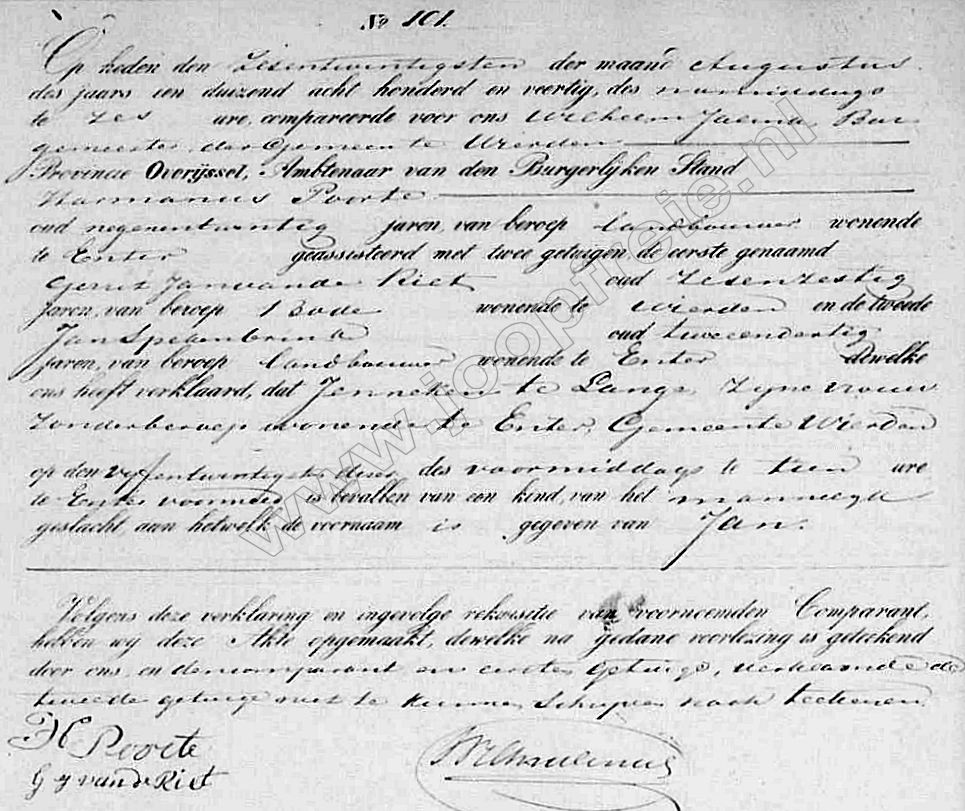 No 101.
Op heden den Zesentwintigsten der maand Augustus
des jaars een duizend acht honderd en veertig, des namiddags
te Zes ure, compareerde voor ons Wilhelm Jalink Bur
gemeester der Gemeente Wierden
Provincie Overijssel, Ambtenaar van den Burgerlijken Stand
Harmanus Poorte
oud negenentwintig jaren, van beroep landbouwer wonende
te Enter geassisteerd met twee getuigen de eerste genaamd
Gerrit Jan van de Riet oud Zesenzestig
Jaren, van beroep Bode wonende te Wierden en de tweede
Jan oud tweeendertig
jaren, van beroep landbouwer wonende te Enter dewelke
ons heeft verklaard, dat Jenneken te Lange, Zyne vrouw
Zonder beroep wonende te Enter, Gemeente Wierden
op den vyfentwintigsten dezer des voormiddags te tien ure
te Enter voormeld is bevallen van een kind, van het mannelyk
geslacht, aan hetwelk de voornaam is gegeven van Jan.
Volgens deze verklaring en ingevolge rekwisitie van voornoemden Comparant,
hebben wy deze Akte opgemaakt, dewelke na gedane voorlezing is geteekend
door ons, en den comparant en eersten Getuige, verklarende de
tweede getuige niet te kunnen Schryven noch teekenen
H Poorte
G J van de Riet
www.joopfreie.nl